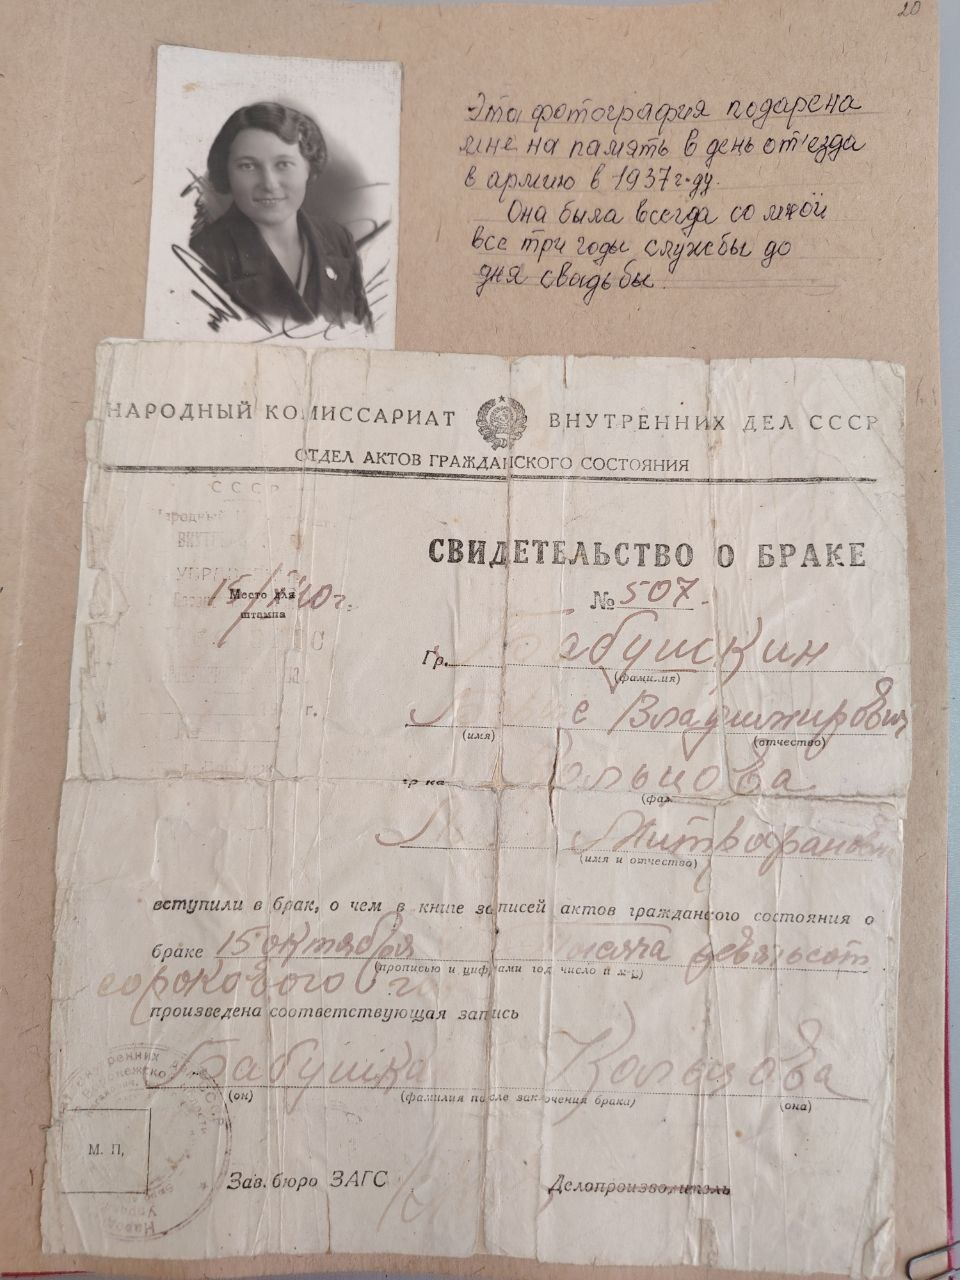 20
Эта фотография подарена
мне на память в день от'езда
в армию в 1937 г·ду.
Она была всегда со мной
все три годы службы до
дня свадьбы.
НАРОДНЫЙ КОМИССАРИАТ ВНУТРЕННИХ ДЕЛ СССР
ОТДЕЛ АКТОВ ГРАЖДАНСКОГО СОСТОЯНИЯ
СССР
СВИДЕТЕЛЬСТВО О БРАКЕ
Место для
штампа
15/X 40 г.
№ 507.
Гр. Бабушкин
(фамилия)
Владимирович
(имя) (отчество)
гр-ка Кольцова
(фам.
Митрофановн
(имя и отчество)
вступили в брак, о чем в книге записей актов гражданского состояния о
браке 15 октября тысяча девятьсот
(прописью и цифрами год число и м-ц)
сорокового г
произведена соответствующая запись
Бабушкин Кольцова
(он) (фамилия после заключения брака) (она)
М. П.
Зав. бюро ЗАГС Делопроизводитель